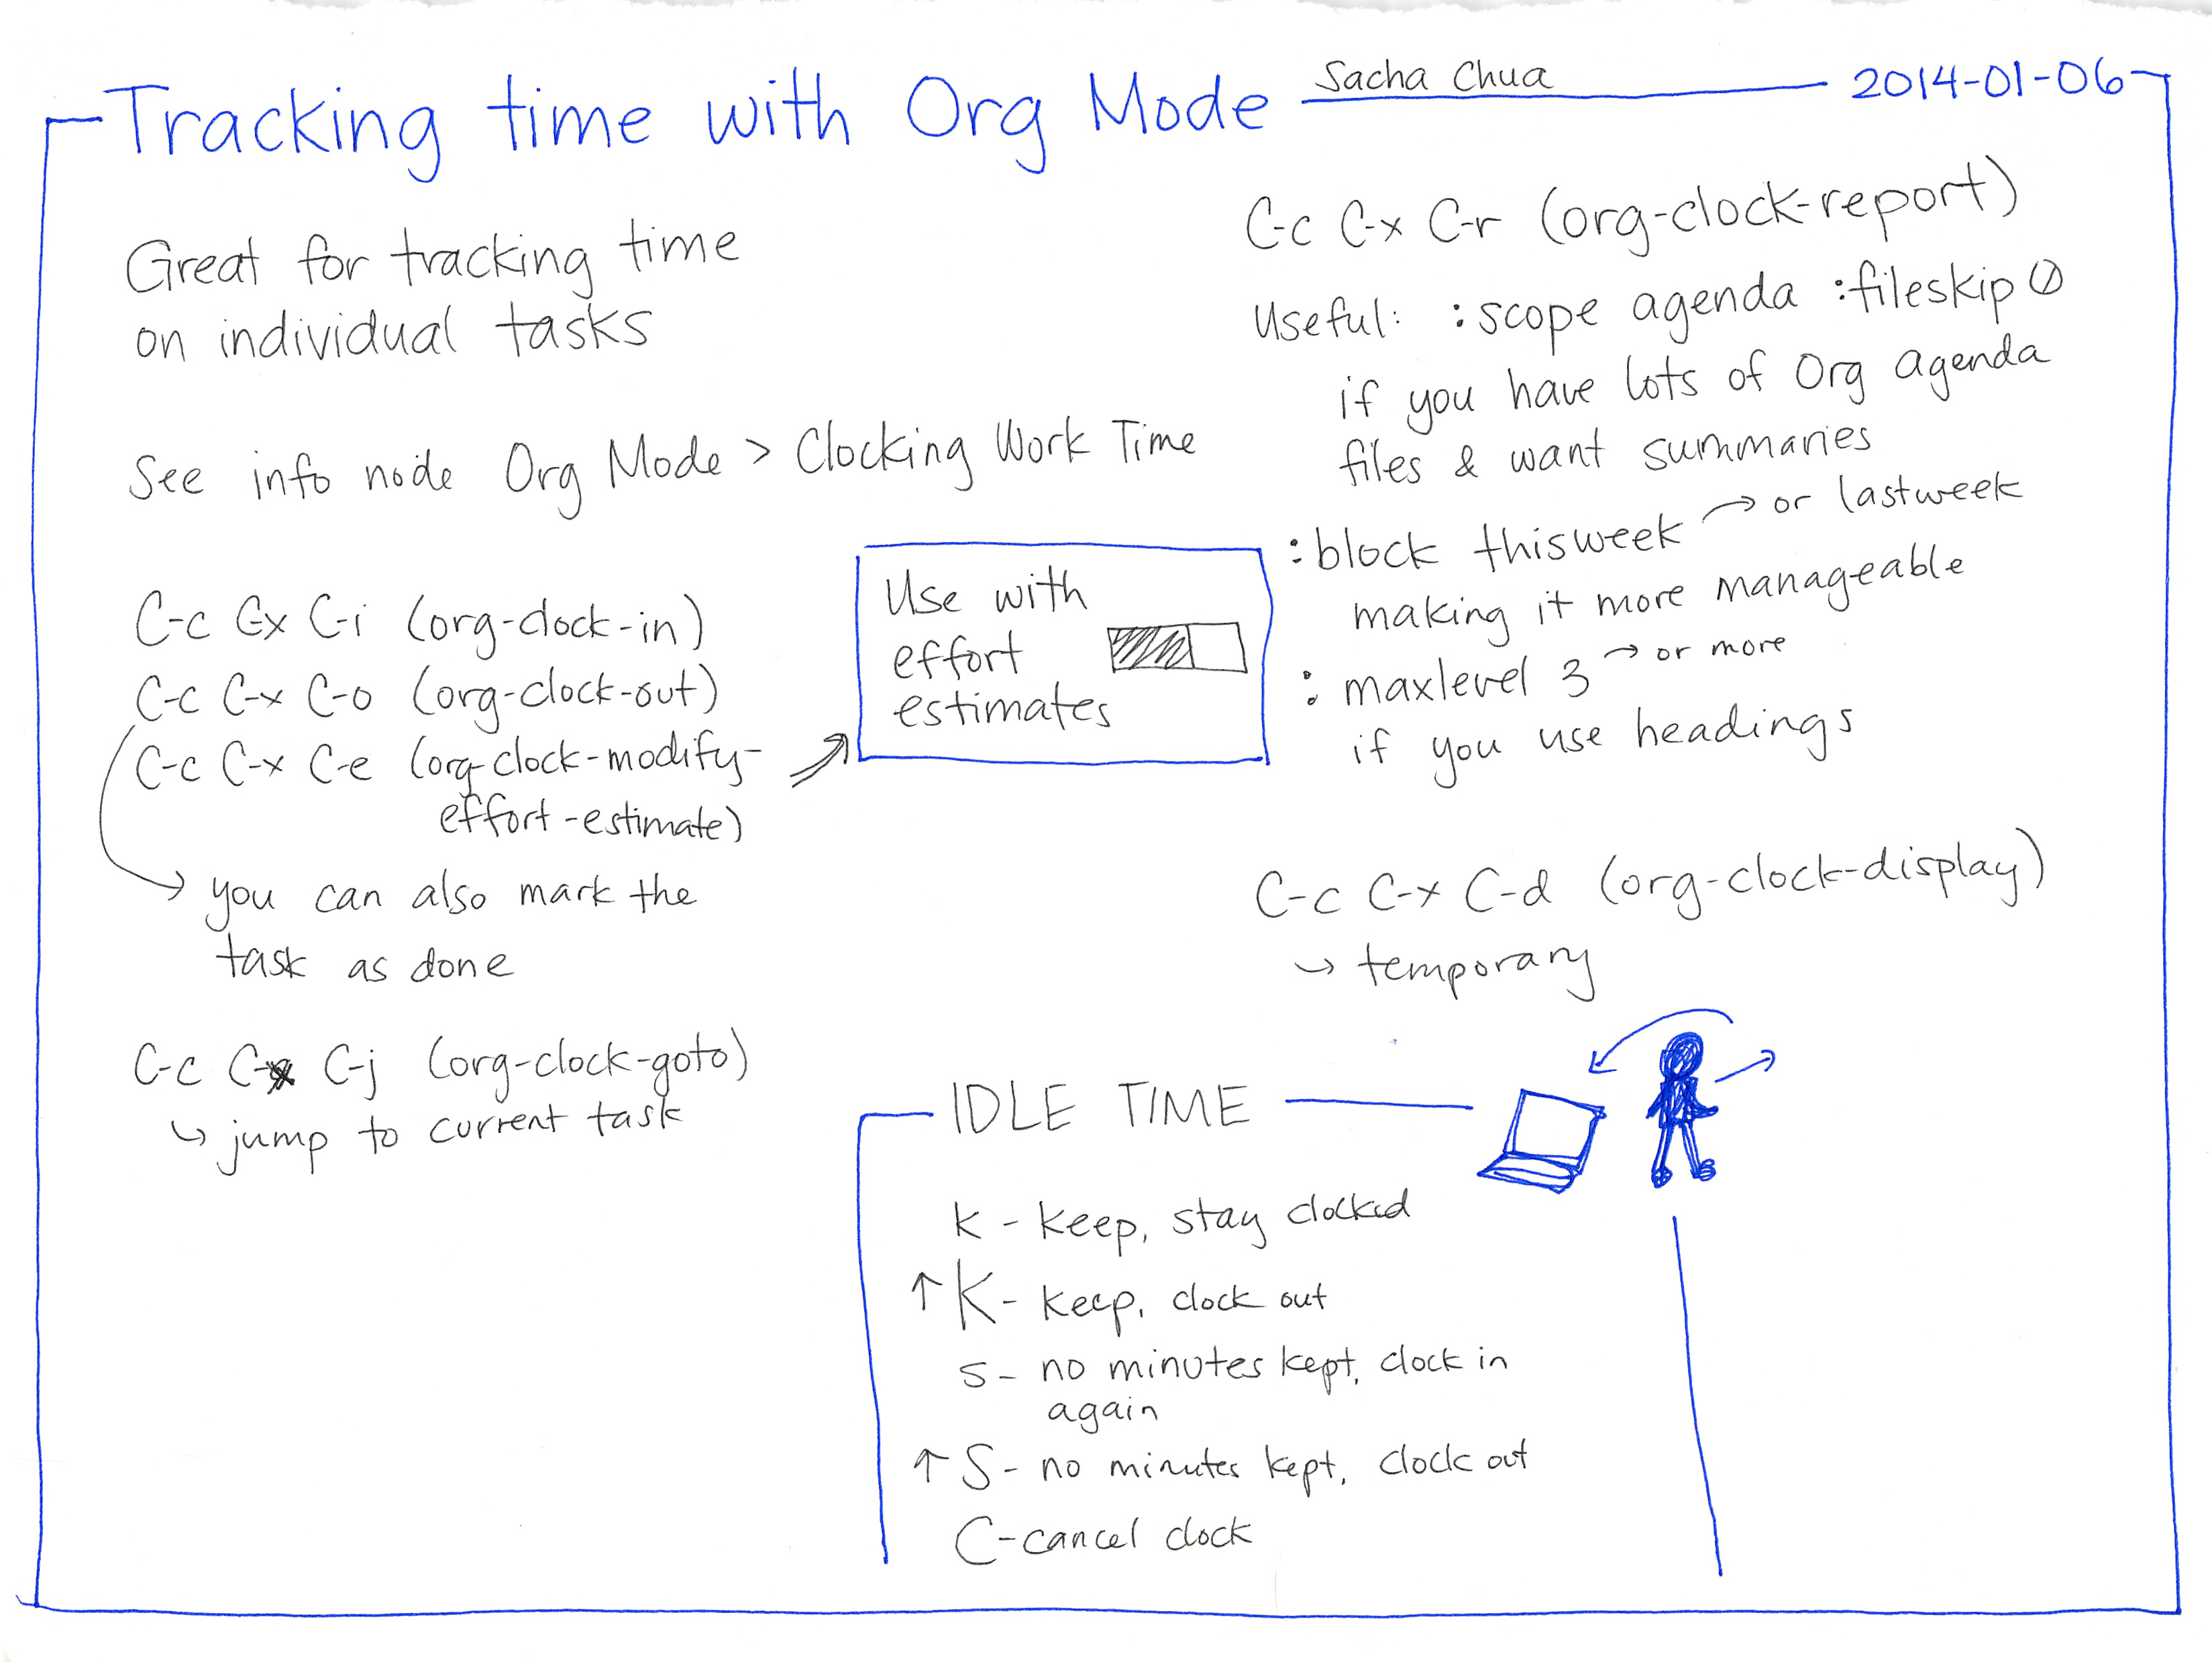 Tracking time with Org Mode
Sacha Chua
2014-01-06
Great for tracking time
on individual tasks
See info node Org Mode > Clocking Work Time
C-c C-x C-i (org-clock-in)
C-c C-x C-o (org-clock-out)
C-c C-x C-e (org-clock-modify-
effort-estimate)
→ you can also mark the
task as done
C-c C-x C-j (org-clock-goto)
↳ jump to current task
Use with
effort
estimates
C-c C-x C-r (org-clock-report)
Useful: :scope agenda :fileskip0
if you have lots of Org agenda
files & want summaries
:block thisweek → or lastweek
making it more manageable
: maxlevel 3 → or more
if you use headings
C-c C-x C-d (org-clock-display)
↳ temporary
IDLE TIME
k - keep, stay clocked
↑ K - keep, clock out
s - no minutes kept, clock in
again
↑ S - no minutes kept, clock out
C - cancel clock